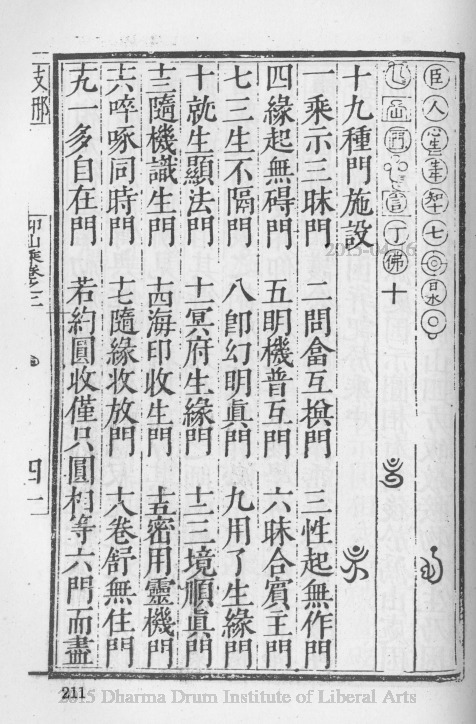 臣人七
丁佛十
十九種門施設
一乘示三昧門 二問畣互換門 三性起無作門
四緣起無碍門 五明機普互門 六昧合賓主門
七三生不隔門 八卽幻明眞門 九用了生緣門
十就生顯法門 十一冥府生緣門 十二三境順眞門
十三隨機識生門 十四海印收生門 十五密用靈機門
十六啐啄同時門 十七隨緣收放門 十八卷舒無住門
十九一多自在門 若約圓收僅只圓相等六門而盡
支那
四一
211
2015 Dharma Drum Institute of Liberal Arts